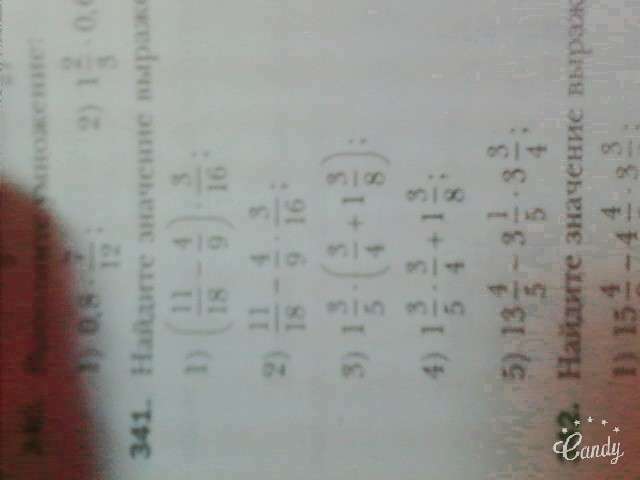 множение:
1) 0,8 · 7/12; 2) 1 2/3 · 0,6
341. Найдите значение выраже
1) (11/18 − 4/9) · 3/16;
2) 11/18 − 4/9 · 3/16;
3) 1 3/5 · (3/4 + 1 3/8);
4) 1 3/5 · 3/4 + 1 3/8;
5) 13 4/5 − 3 1/5 · 3 3/4;
Найдите значение выраж
1) 15 4/5 − 4 4/ · 3 3/
Candy